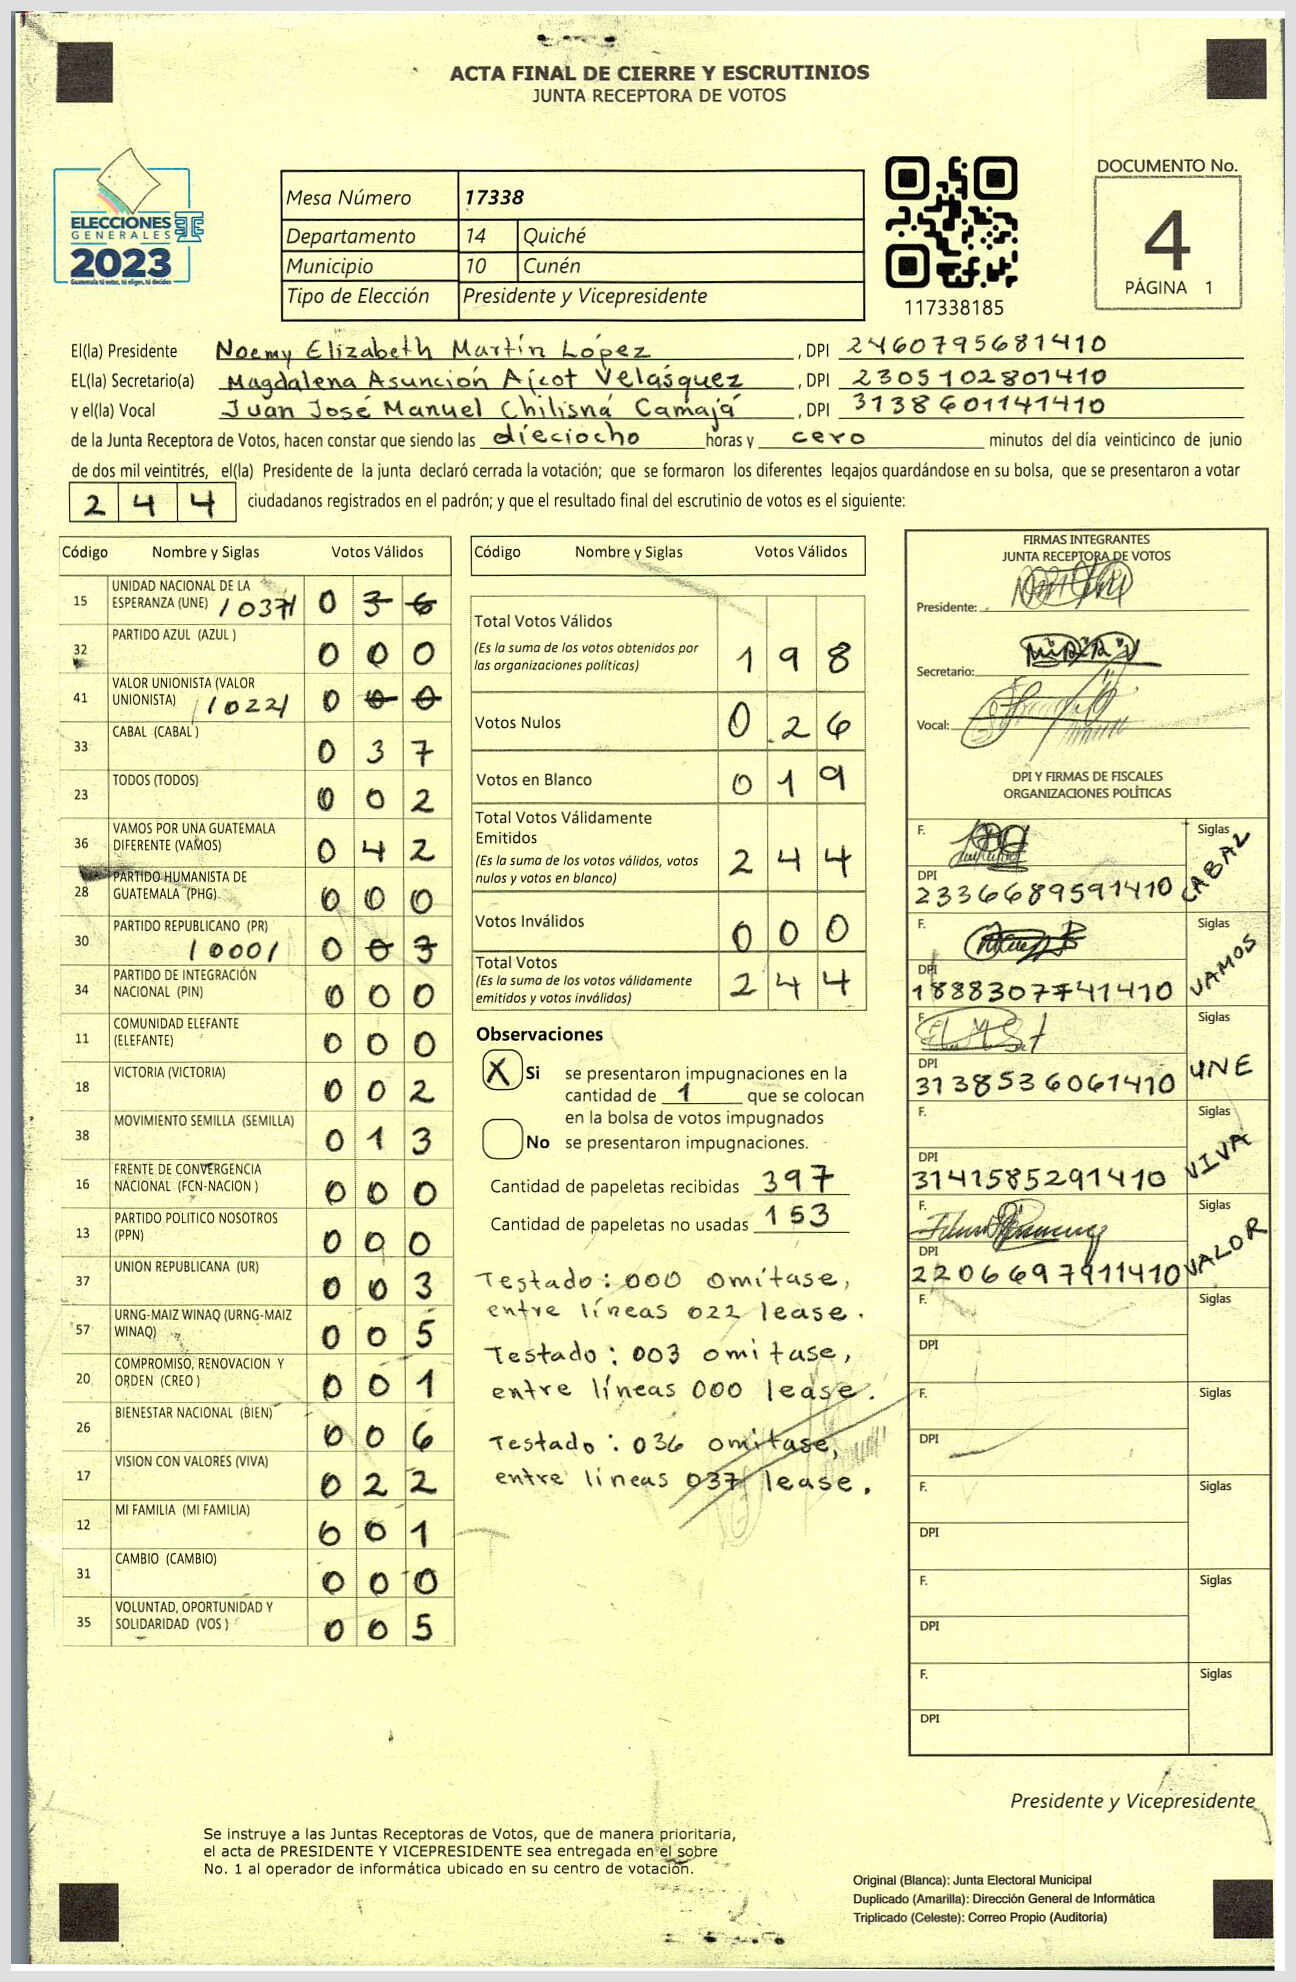 ACTA FINAL DE CIERRE Y ESCRUTINIOS
JUNTA RECEPTORA DE VOTOS
ELECCIONES
GENERALES
2023
Guatemala tú votas, tú eliges, tú decides
Mesa Número 17338
Departamento 14 Quiché
Municipio 10 Cunén
Tipo de Elección Presidente y Vicepresidente
117338185
DOCUMENTO No.
4
PÁGINA 1
El(la) Presidente Noemy Elizabeth Martín López, DPI 2460795681410
EL(la) Secretario(a) Magdalena Asunción Ajcot Velásquez, DPI 2305102801410
y el(la) Vocal Juan José Manuel Chilisná Camajá, DPI 3138601141410
de la Junta Receptora de Votos, hacen constar que siendo las dieciocho horas y cero minutos del día veinticinco de junio
de dos mil veintitrés, el(la) Presidente de la junta declaró cerrada la votación; que se formaron los diferentes legajos guardándose en su bolsa, que se presentaron a votar
244 ciudadanos registrados en el padrón; y que el resultado final del escrutinio de votos es el siguiente:
Código Nombre y Siglas Votos Válidos
15 UNIDAD NACIONAL DE LA ESPERANZA (UNE) /037/ 0 3 6
32 PARTIDO AZUL (AZUL ) 0 0 0
41 VALOR UNIONISTA (VALOR UNIONISTA) /022/ 0 0 0
33 CABAL (CABAL ) 0 3 7
23 TODOS (TODOS) 0 0 2
36 VAMOS POR UNA GUATEMALA DIFERENTE (VAMOS) 0 4 2
28 PARTIDO HUMANISTA DE GUATEMALA (PHG) 0 0 0
30 PARTIDO REPUBLICANO (PR) /000/ 0 0 3
34 PARTIDO DE INTEGRACIÓN NACIONAL (PIN) 0 0 0
11 COMUNIDAD ELEFANTE (ELEFANTE) 0 0 0
18 VICTORIA (VICTORIA) 0 0 2
38 MOVIMIENTO SEMILLA (SEMILLA) 0 1 3
16 FRENTE DE CONVERGENCIA NACIONAL (FCN-NACION ) 0 0 0
13 PARTIDO POLITICO NOSOTROS (PPN) 0 0 0
37 UNION REPUBLICANA (UR) 0 0 3
57 URNG-MAIZ WINAQ (URNG-MAIZ WINAQ) 0 0 5
20 COMPROMISO, RENOVACION Y ORDEN (CREO ) 0 0 1
26 BIENESTAR NACIONAL (BIEN) 0 0 6
17 VISION CON VALORES (VIVA) 0 2 2
12 MI FAMILIA (MI FAMILIA) 0 0 1
31 CAMBIO (CAMBIO) 0 0 0
35 VOLUNTAD, OPORTUNIDAD Y SOLIDARIDAD (VOS ) 0 0 5
Código Nombre y Siglas Votos Válidos
Total Votos Válidos 1 9 8
(Es la suma de los votos obtenidos por
las organizaciones políticas)
Votos Nulos 0 2 6
Votos en Blanco 0 1 9
Total Votos Válidamente
Emitidos 2 4 4
(Es la suma de los votos válidos, votos
nulos y votos en blanco)
Votos Inválidos 0 0 0
Total Votos 2 4 4
(Es la suma de los votos válidamente
emitidos y votos inválidos)
Observaciones
X Si se presentaron impugnaciones en la
cantidad de 1 que se colocan
en la bolsa de votos impugnados
No se presentaron impugnaciones.
Cantidad de papeletas recibidas 397
Cantidad de papeletas no usadas 153
Testado: 000 omítase,
entre líneas 022 lease.
Testado: 003 omitase,
entre líneas 000 lease.
Testado: 036 omitase,
entre líneas 037 lease.
FIRMAS INTEGRANTES
JUNTA RECEPTORA DE VOTOS
Presidente:
Secretario:
Vocal:
DPI Y FIRMAS DE FISCALES
ORGANIZACIONES POLÍTICAS
F. Siglas CABAL
DPI 2336689591410
F. Siglas VAMOS
DPI 1888307741410
F. Siglas UNE
DPI 3138536061410
F. Siglas VIVA
DPI 3141585291410
F. Siglas VALOR
DPI 2206697911410
F. Siglas
DPI
F. Siglas
DPI
F. Siglas
DPI
F. Siglas
DPI
F. Siglas
DPI
Presidente y Vicepresidente
Se instruye a las Juntas Receptoras de Votos, que de manera prioritaria,
el acta de PRESIDENTE Y VICEPRESIDENTE sea entregada en el sobre
No. 1 al operador de informática ubicado en su centro de votación.
Original (Blanca): Junta Electoral Municipal
Duplicado (Amarilla): Dirección General de Informática
Triplicado (Celeste): Correo Propio (Auditoría)